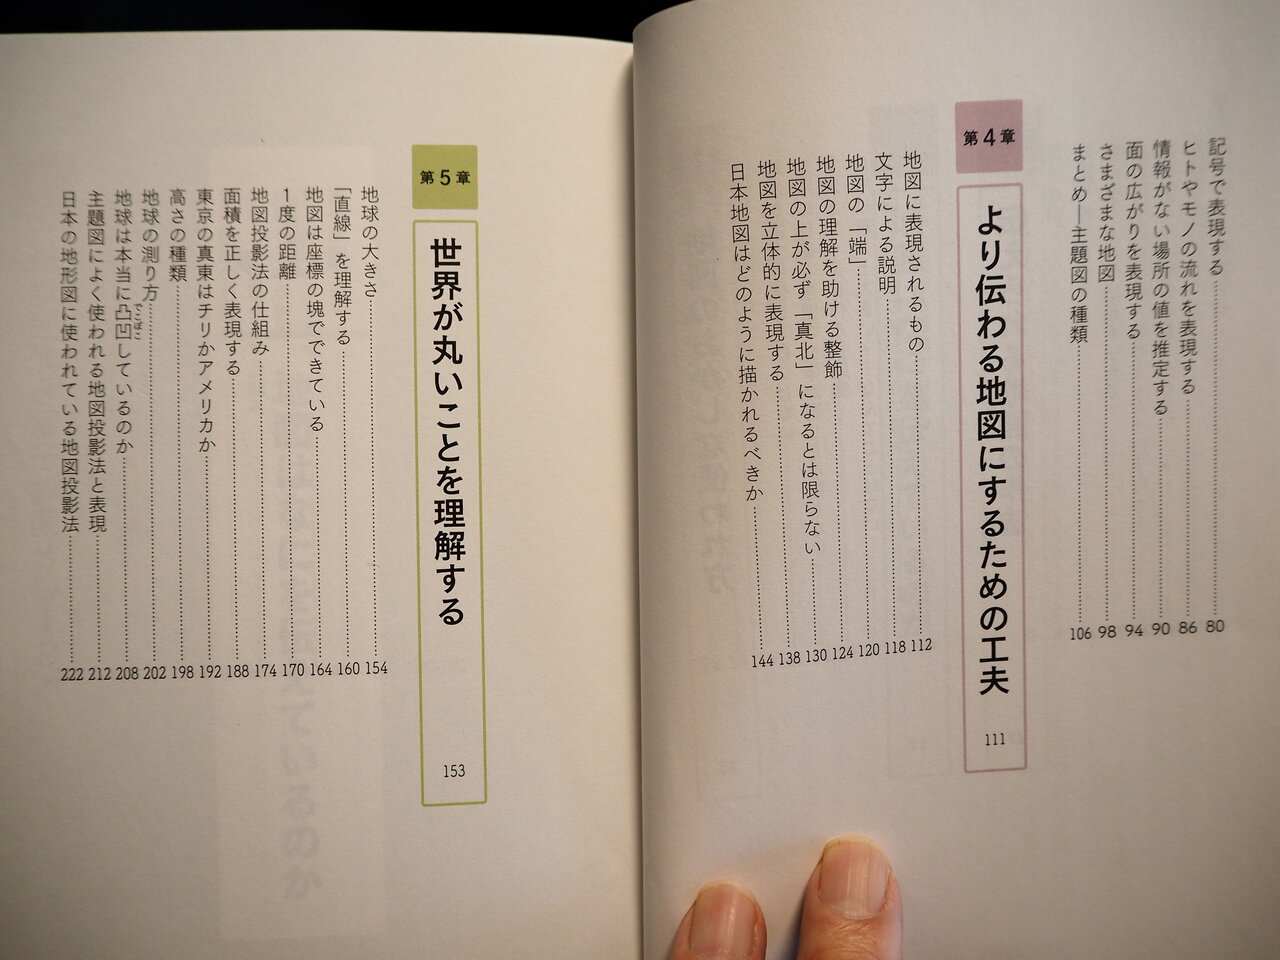 記号で表現する……80
ヒトやモノの流れを表現する……86
情報がない場所の値を推定する……90
面の広がりを表現する……94
さまざまな地図……98
まとめ―主題図の種類……106
第4章
より伝わる地図にするための工夫
111
地図に表現されるもの……112
文字による説明……118
地図の「端」……120
地図の理解を助ける整飾……124
地図の上が必ず「真北」になるとは限らない……130
地図を立体的に表現する……138
日本地図はどのように描かれるべきか……144
第5章
世界が丸いことを理解する
153
地球の大きさ……154
「直線」を理解する……160
地図は座標の塊でできている……164
1度の距離……170
地図投影法の仕組み……174
面積を正しく表現する……188
東京の真東はチリかアメリカか……192
高さの種類……198
地球の測り方……202
地球は本当に凸凹しているのか……208
でこぼこ
主題図によく使われる地図投影法と表現……212
日本の地形図に使われている地図投影法……222